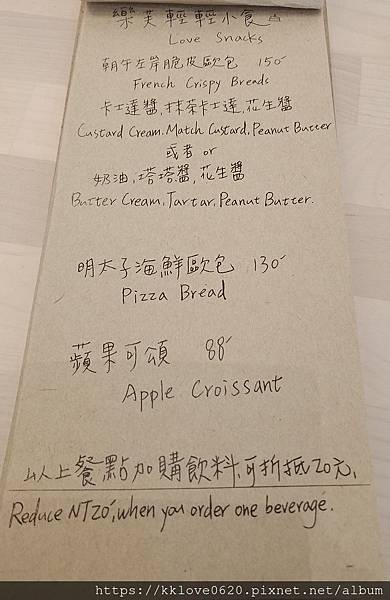 樂芙輕輕小食
Love Snacks
朝午左岸脆皮歐包 150
French Crispy Breads
卡士達醬,抹茶卡士達,花生醬
Custard Cream. Match Custard, Peanut Butter
或者 or
奶油,塔塔醬,花生醬
Butter Cream, Tartar, Peanut Butter.
明太子海鮮歐包 130
Pizza Bread
蘋果可頌 88
Apple Croissant
以上餐點加購飲料,可折抵20元,
Reduce NT20, when you order one beverage.
https://kklove0620.pixnet.net/album